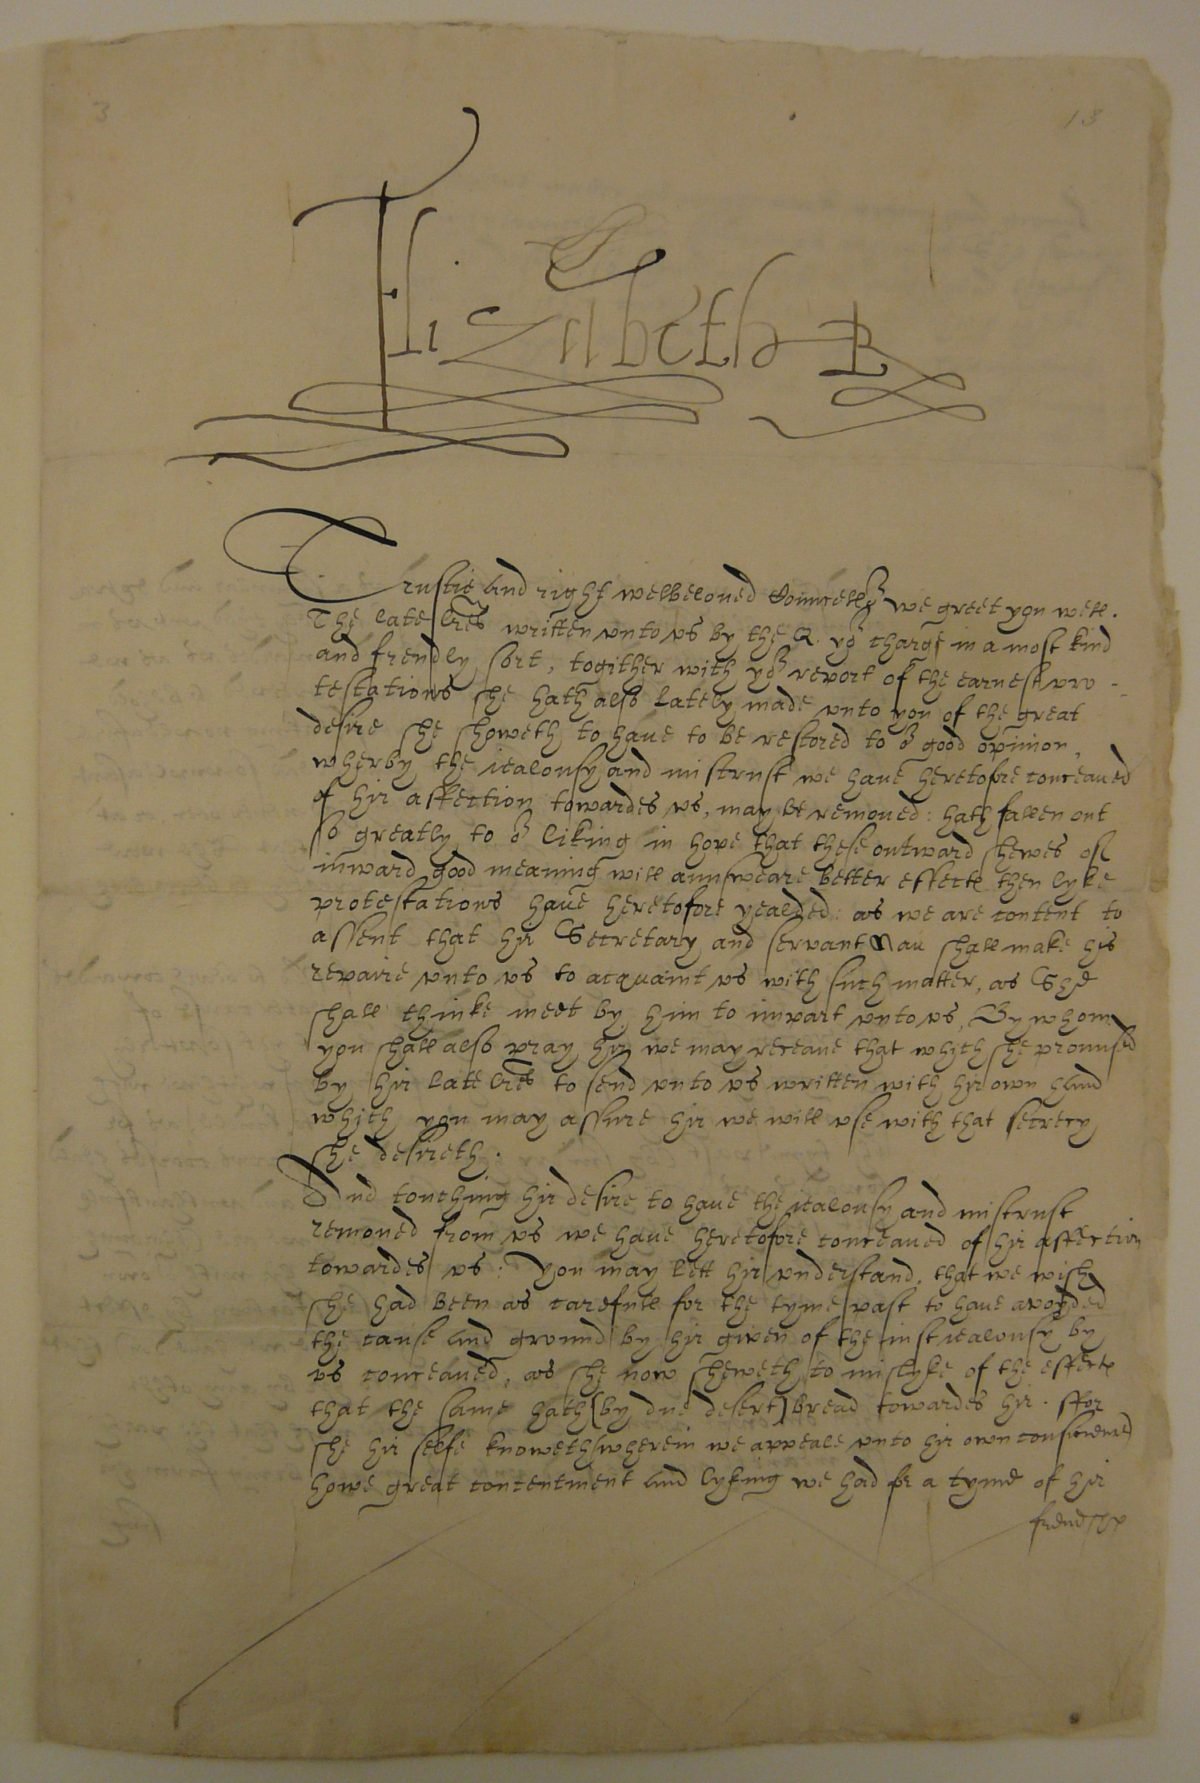 3
13
Elizabeth R
Trustie and right welbeloved Councellor we greet you well.
The late lres written unto us by the Q. yor charge in a most kind
and frendly sort, togither with yor report of the earnest pro-
testations she hath also lately made unto you of the great
desire she showeth to have to be restored to or good opinion,
wherby the jealousy and mistrust we have heretofore conceaved
of hir affection towardes us, may be removed: hath fallen out
so greatly to or liking in hope that these outward shewes of
inward good meaning will aunsweare better effectes then lyke
protestations have heretofore yealded: as we are content to
assent that hir Secretary and servant Nau shall make his
repaire unto us to acquaint us with such matter, as She
shall thinke meet by him to impart unto us, By whom
you shall also pray hir we may receave that which she promised
by hir late lres to send unto us written with hir own hand
which you may assure hir we will use with that secrecy
she desireth.
And touching hir desire to have the jealousy and mistrust
removed from us we have heretofore conceaved of hir affection
towardes us: You may lett hir understand, that we wish
she had been as carefull for the tyme past to have avoyded
the cause and ground by hir given of the just jealousy by
us conceaved, as she now sheweth to mislyke of the effectes
that the same hath (by due desert) bread towardes hir. ffor
she hir selfe knoweth wherein we appeale unto hir own conscience
howe great contentment and lyking we had for a tyme of hir
frendship